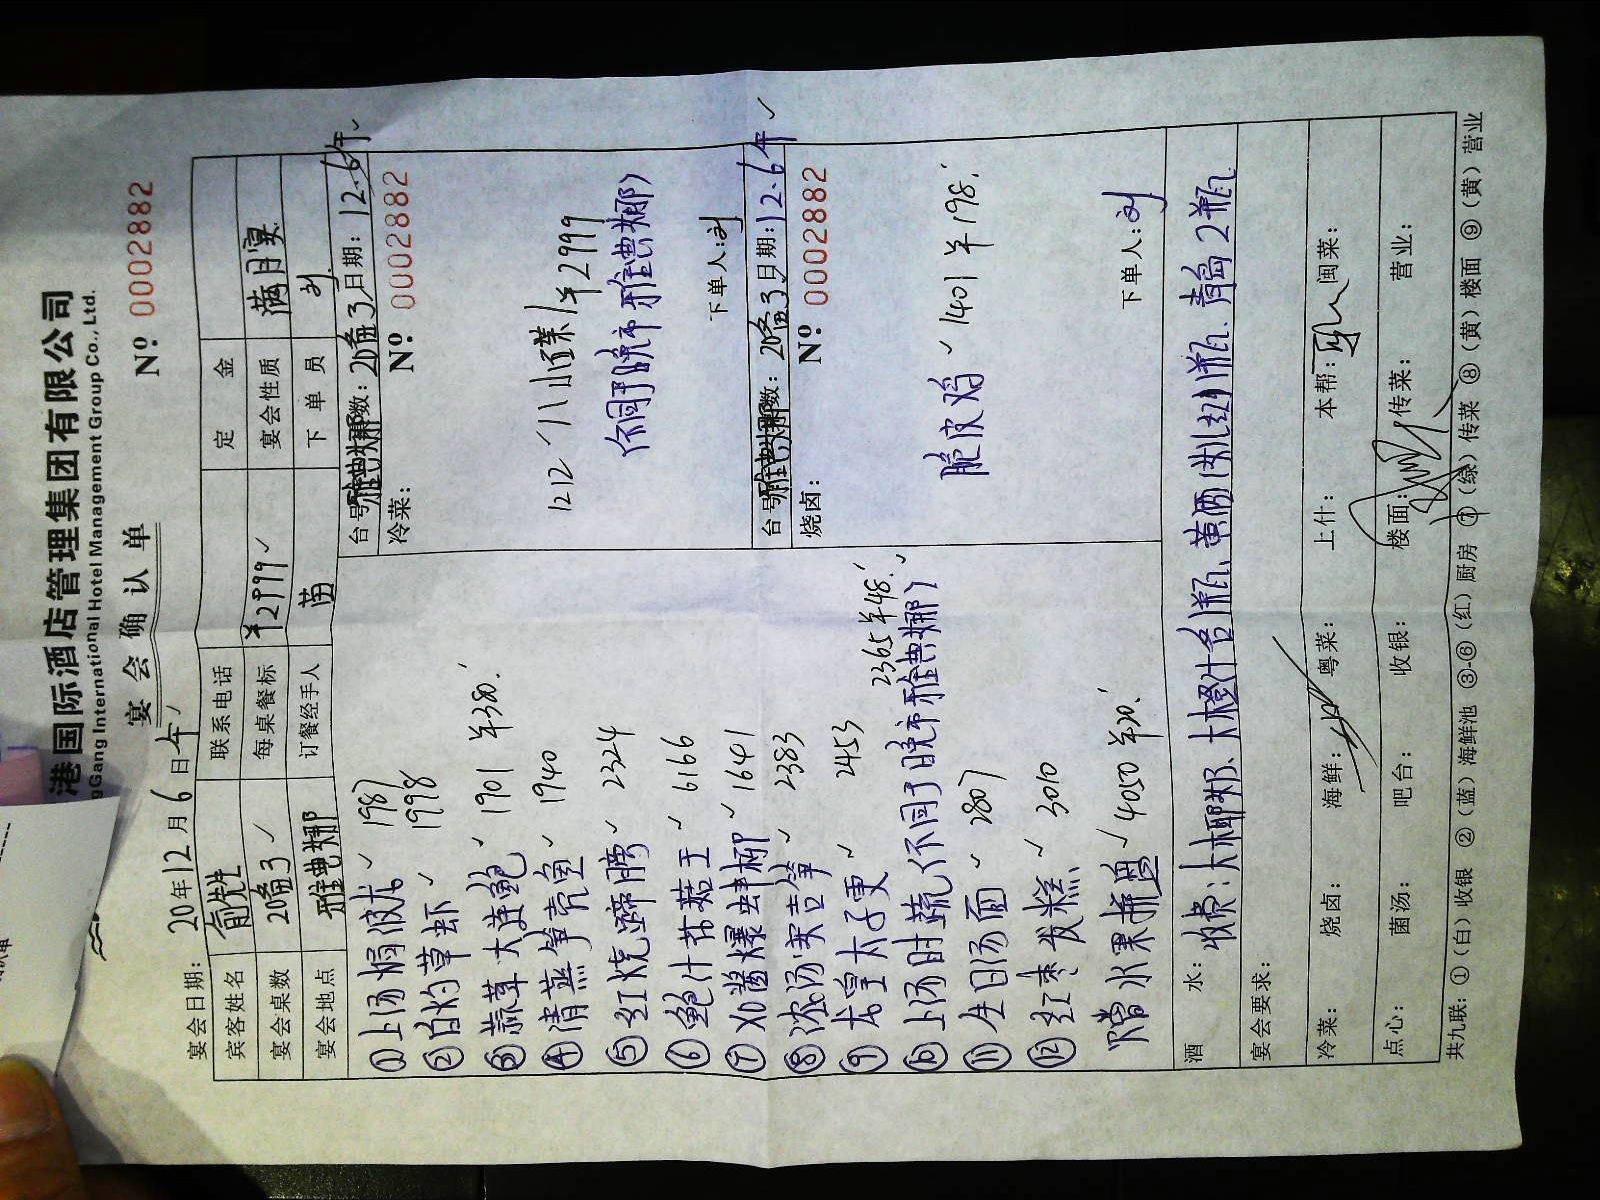 港国际酒店管理集团有限公司
gGang International Hotel Management Group Co., Ltd.
宴会确认单
Nº 0002882
宴会日期: 20 年 12 月 6 日 午
宾客姓名 俞先生 联系电话 定金
宴会桌数 20备3 ✓ 每桌餐标 ¥2999 ✓ 宴会性质 满月宴
宴会地点 雅典娜 订餐经手人 苗 下单员 刘
① 上汤焗波龙 ✓ 1987
② 白灼草虾 ✓ 1998
③ 蒜茸大连鲍 ✓ 1901 半380.
④ 清蒸笋壳鱼 ✓ 1940
⑤ 红烧蹄膀 ✓ 2324
⑥ 鲍汁菇王 ✓ 6166
⑦ XO酱爆蚌柳 ✓ 1641
⑧ 浓汤 ✓ 2383
⑨ 龙皇太子更 ✓ 2453
2365 半48. ✓
⑩ 上汤时蔬 (不同于晚市雅典娜)
⑪ 生日汤面 ✓ 2807
⑫ 红枣发糕 ✓ 3010
水果拼盘 ✓ 4050 半20.
台号 雅典娜 数: 20备3 日期: 12.6午 ✓
冷菜: Nº 0002882
1212 八小碟 ¥2999
(不同于晚市雅典娜)
下单人: 刘
台号 雅典娜 数: 20备3 日期: 12.6午 ✓
烧卤: Nº 0002882
脆皮鸡 ✓ 1401 半198.
下单人: 刘
酒水: 收费: 大椰奶、大橙汁各1瓶、 红1瓶、青岛2瓶
宴会要求:
冷菜: 烧卤: 海鲜: 粤菜: 上什: 本帮: 闽菜:
点心: 菌汤: 吧台: 收银: 楼面: 传菜: 营业:
共九联: ①(白)收银 ②(蓝)海鲜池 ③-⑥(红)厨房 ⑦(绿)传菜 ⑧(黄)楼面 ⑨(黄)营业